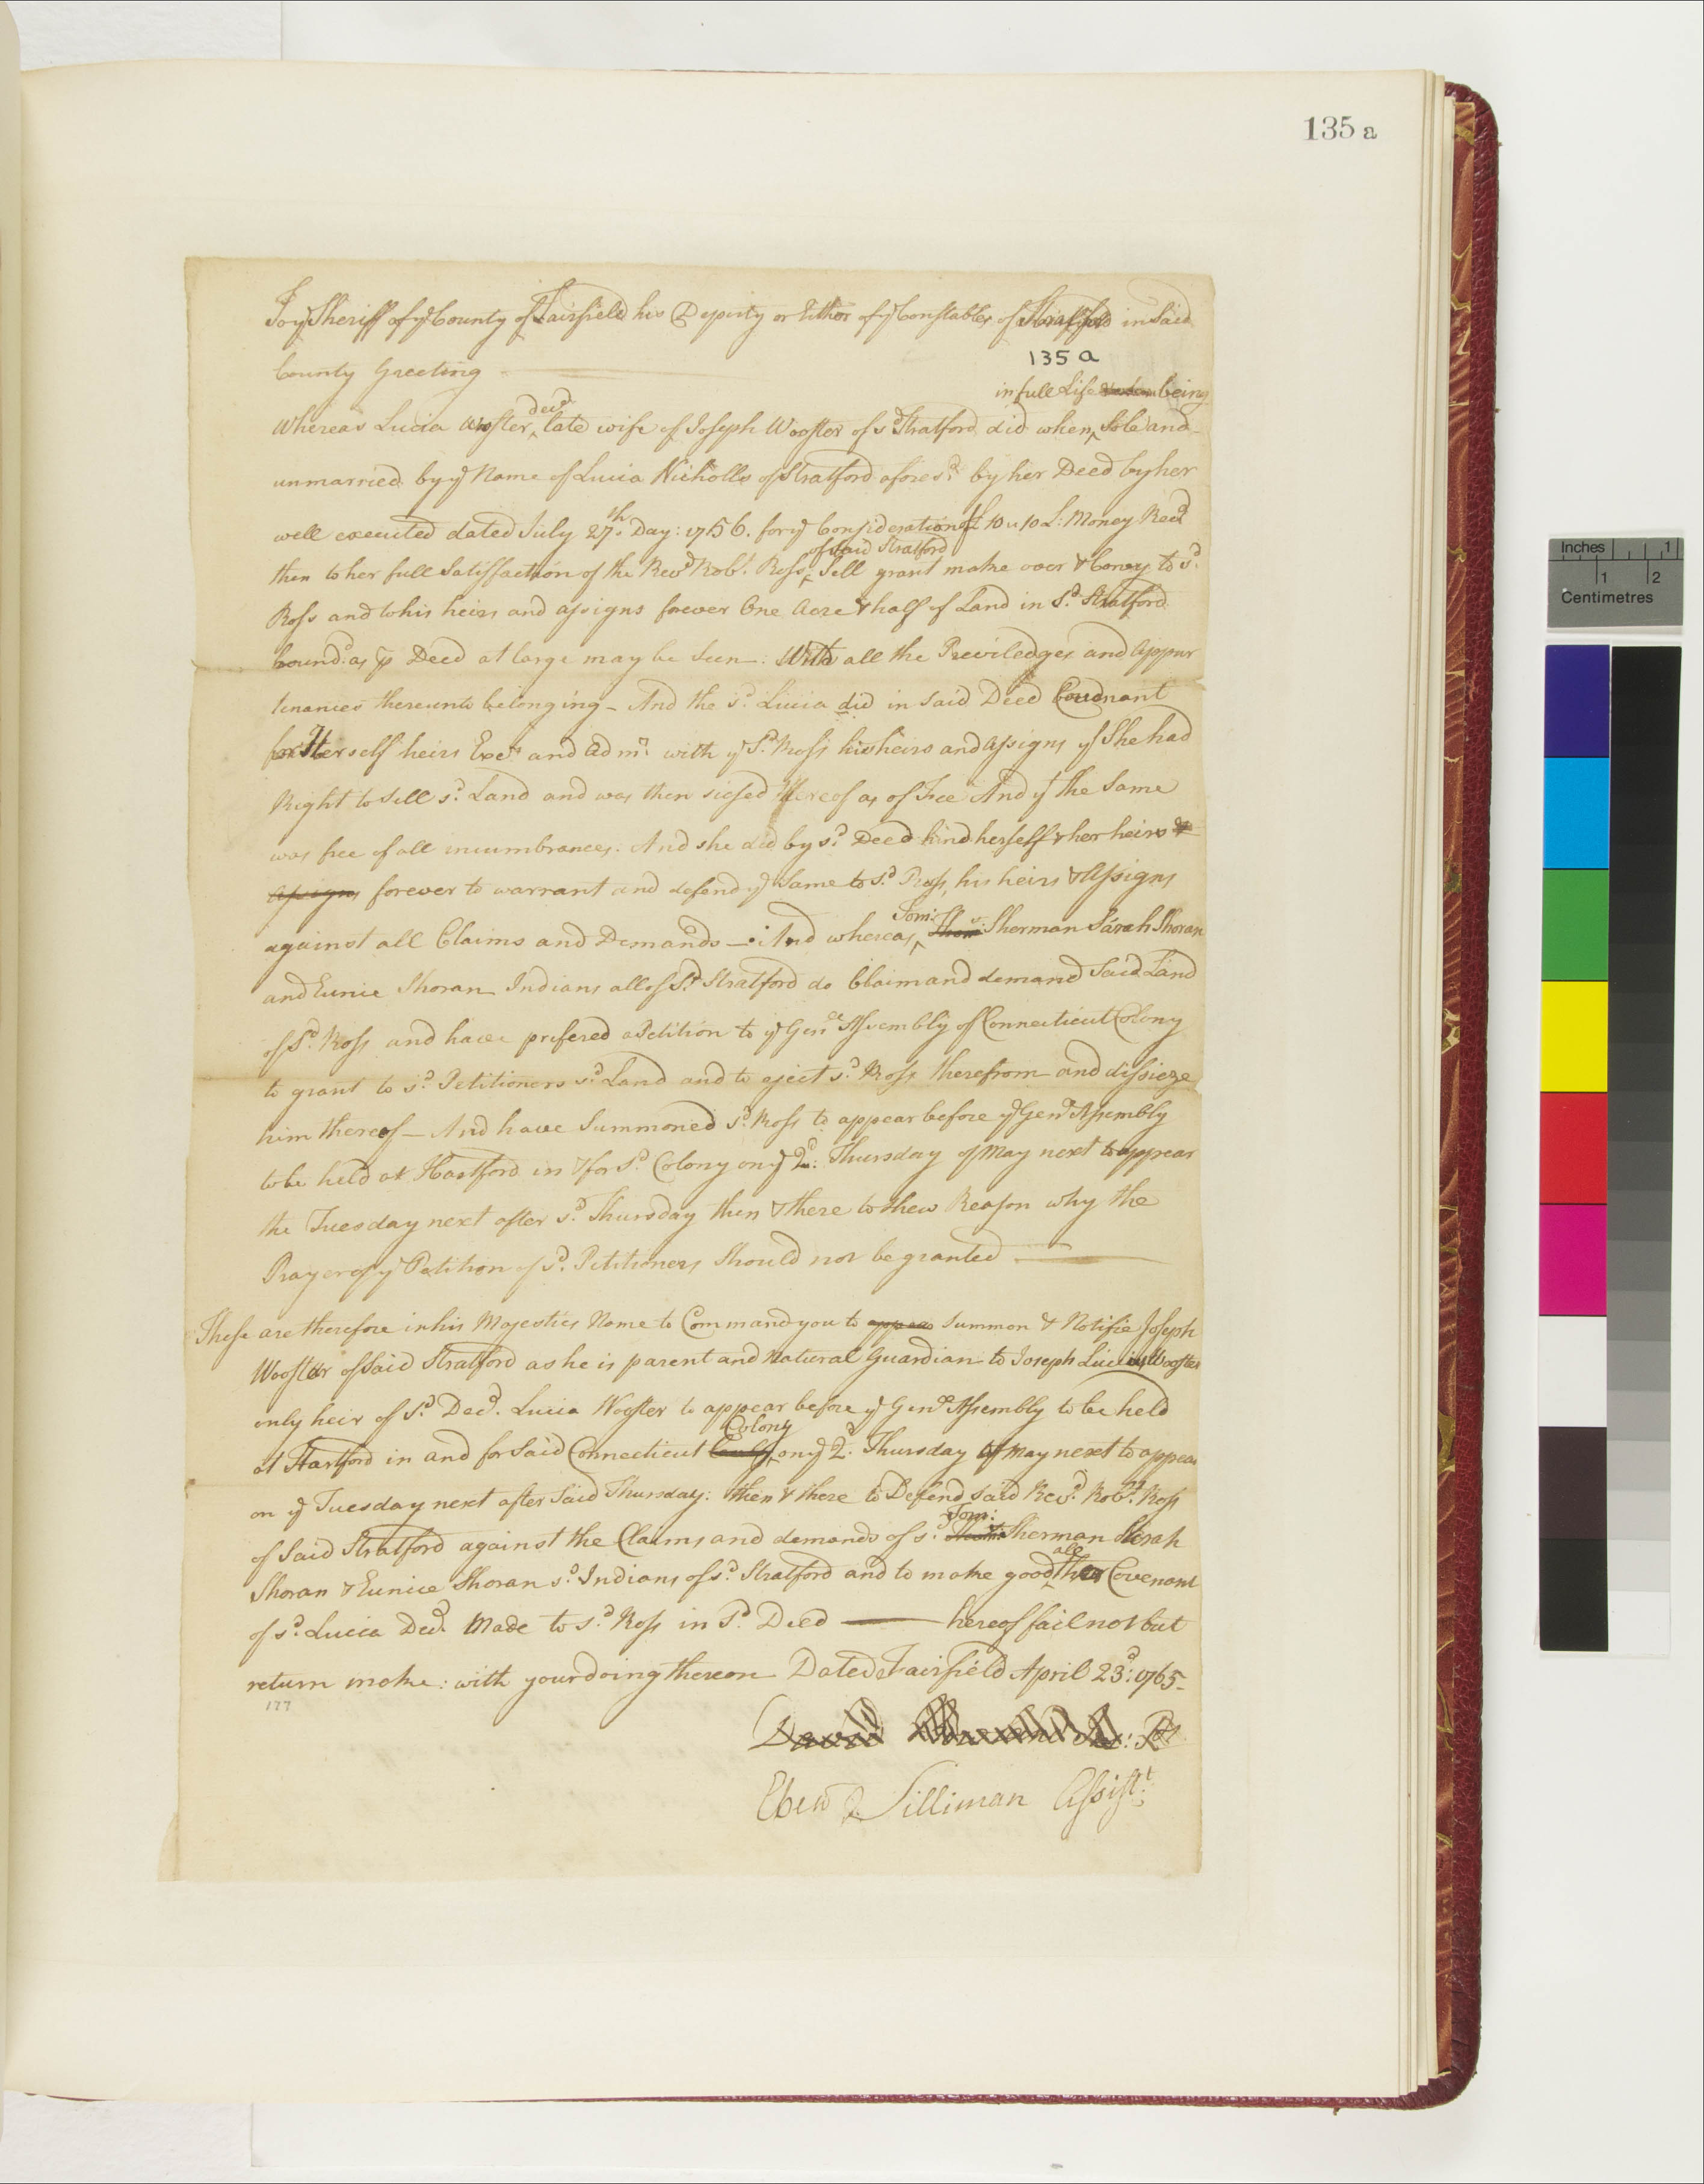 135 a
To yͤ Sheriff of yͤ County of Fairfield his Deputy or Either of yͤ Constables of Stratford in Said
135 a
County Greeting
in full Life being
decd
Whereas Lucia Wooster late wife of Joseph Wooster of sd Stratford did when Sole and
unmarried by ye Name of Lucia Nicholls of Stratford afores.d by her Deed by her
well executed dated July 27.th Day: 1756. for ye Consideration of £10 " 10 L: Money Recd
of Said Stratford
then to her full Satisfaction of the Revd Robt. Ross, Sell grant make over & Convey to sd.
Ross and to his heirs and assigns forever One Acre & half of Land in Sd. Stratford
bound.d as p Deed at large may be Seen: With all the Priviledges and Appur
tenances thereunto belonging - And the sd. Lucia did in said Deed Covenant
for Herself heirs Execrs and Admrs with ye Sd. Ross his heirs and Assigns yt She had
Right to Sell sd. Land and was then siezed thereof as of Fee And yt the Same
was free of all incumbrances. And she did by sd. Deed bind herself & her heirs &
Assigns forever to warrant and defend ye Same to S.d Ross, his heirs & Assigns
Tom:
against all Claims and Demands - And whereas Thos: Sherman Sarah Shoran
and Eunice Shoran Indians all of Sd. Stratford do Claim and demand Said Land
of Sd. Ross and have prefered a Petition to ye Genll Assembly of Connecticut Colony
to grant to sd. Petitioners sd. Land and to eject sd. Ross therefrom and dissieze
him thereof - And have Summoned sd. Ross to appear before ye Genll Assembly
to be held at Hartford in & for Sd. Colony on ye 2d: Thursday of May next to appear
the Tuesday next after sd. Thursday then & there to shew Reason why the
Prayer of ye Petition of sd. Petitioners Should not be granted
These are therefore in his Majesties Name to Command you to appear Summon & Notifie Joseph
Wooster of Said Stratford as he is parent and Natural Guardian to Joseph Lucius Wooster
only heir of Sd. Decd. Lucia Wooster to appear before ye Genll Assembly to be held
Colony
at Hartford in and for Said Connecticut on ye 2d. Thursday of May next to appear
on ye Tuesday next after Said Thursday: then & there to Defend said Revd. Robt. Ross
Tom:
of Said Stratford against the Claims and demands of sd. Thos: Sherman Sarah
all
Shoran & Eunice Shoran sd. Indians of sd. Stratford and to make good the Covenant
of sd. Lucia Decd. Made to sd. Ross in Sd. Deed — hereof fail not but
return make: with your doing thereon Dated Fairfield April 23d: 1765-
177
David
Ebenr Silliman Assist.t
Inches 1
1 2
Centimetres